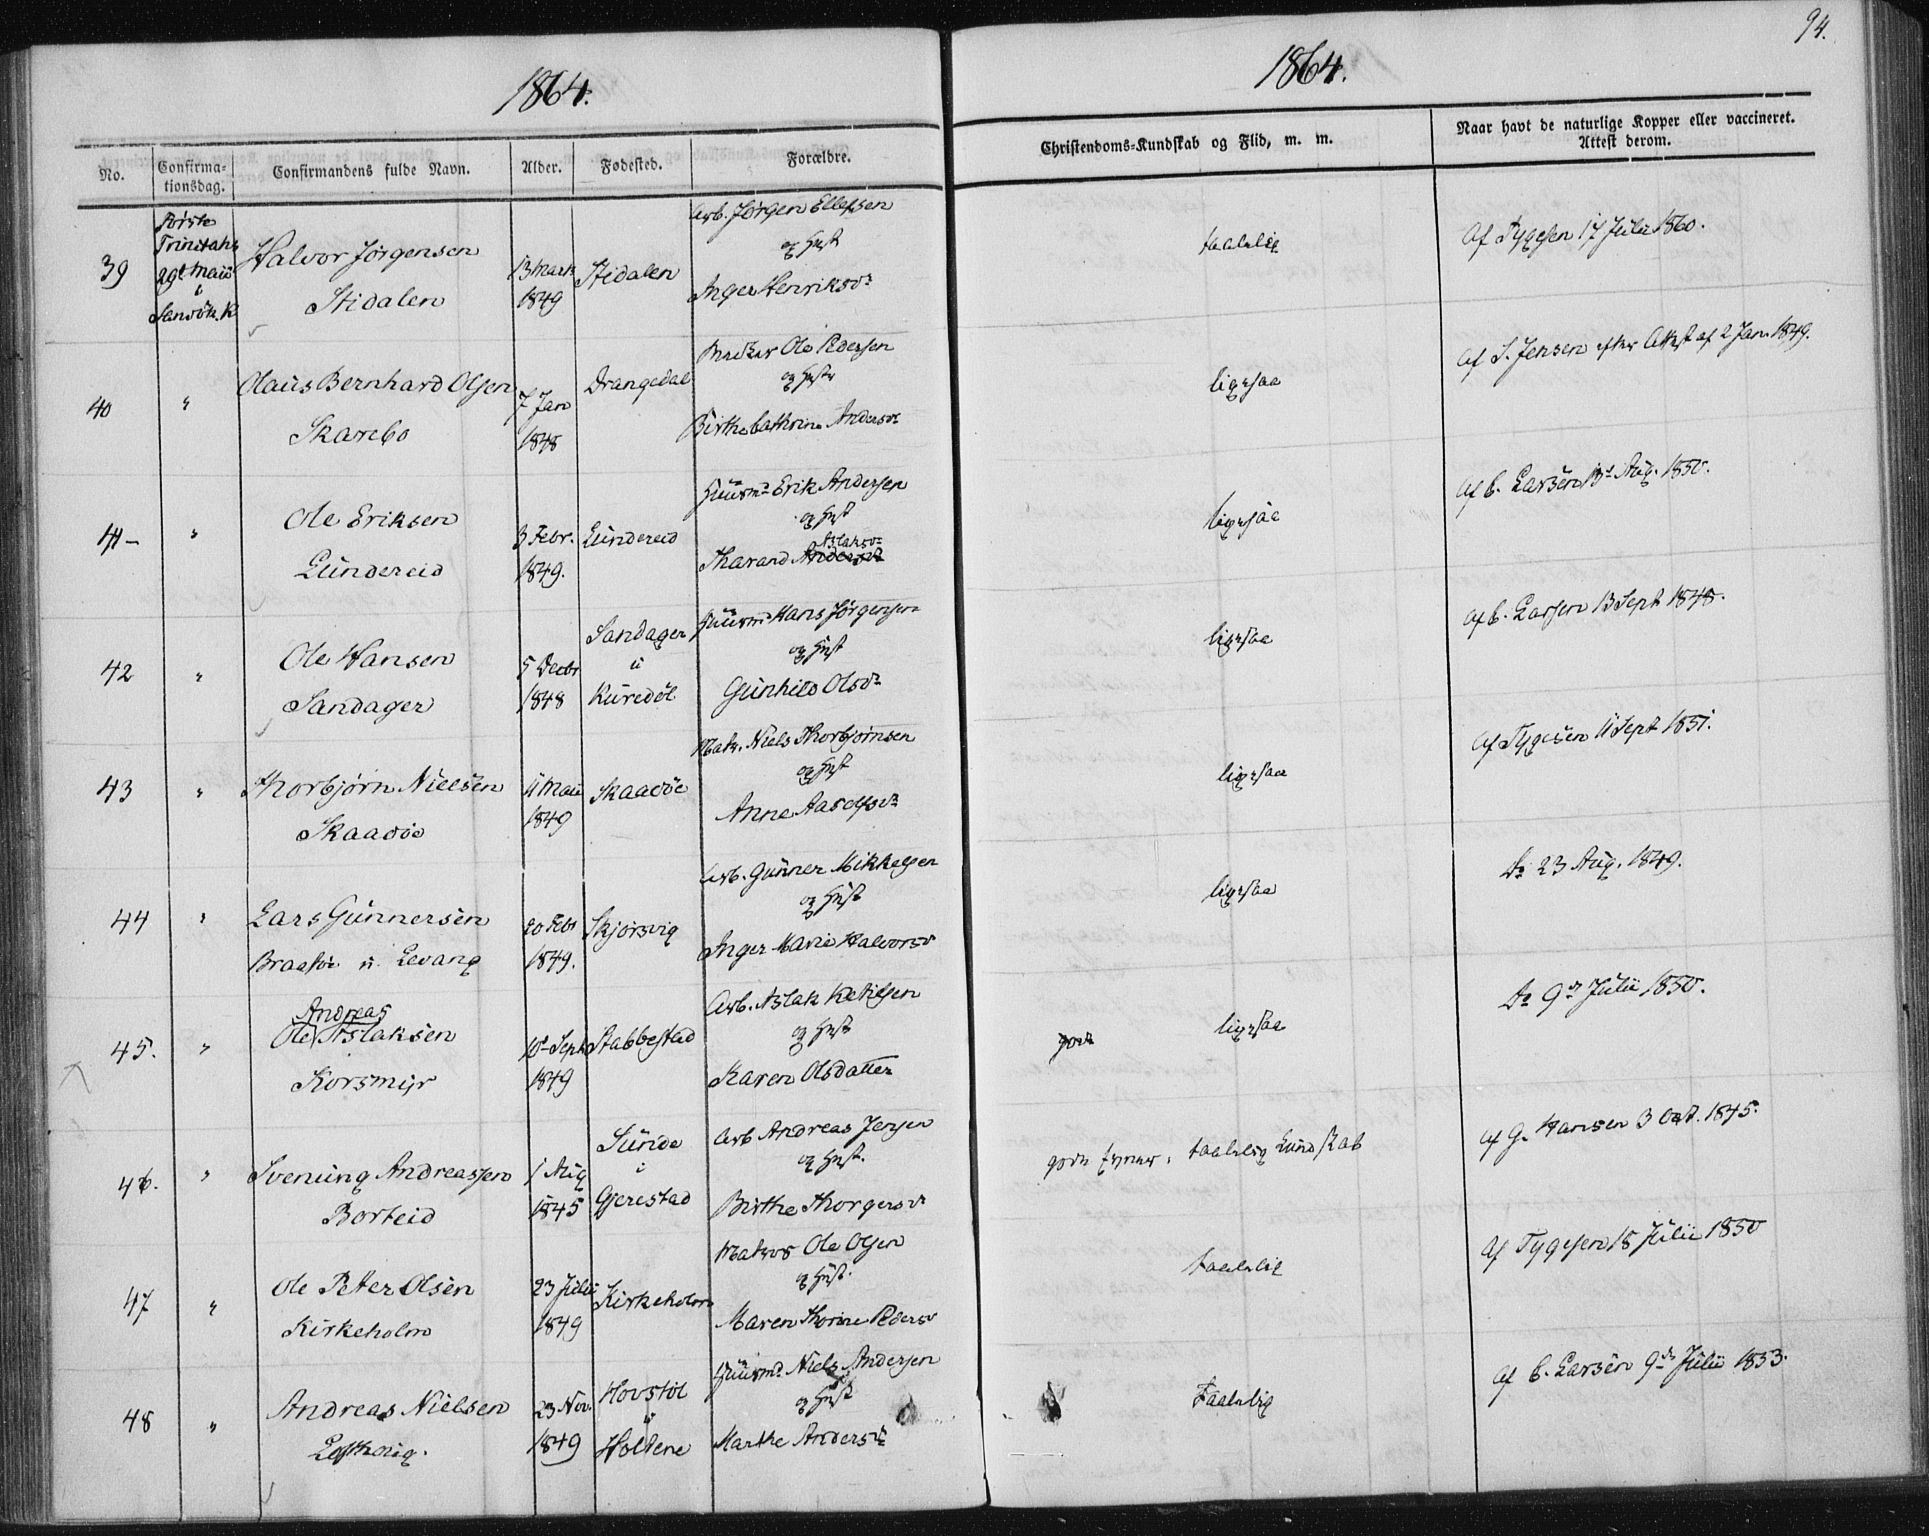 94.
1864.
1864.
No.
Confirma-
tionsdag.
Confirmandens fulde Navn.
Alder.
Fødested.
Forældre.
Christendoms-Kundskab og Flid, m. m.
Naar havt de naturlige Kopper eller vaccineret.
Attest derom.
39
Første
Trinitatis
29t Maii
i
Sanøk. K
Halvor Jørgensen
Stidalen
13 Marts
1849
Stidalen
Arb. Jørgen Ellefsen
og Hust
Inger Henriksdr
taalelig
Af Tygesen 17 Julii 1860.
40
"
Olaus Bernhard Olsen
Skarebo
7 Jan
1848
Drangedal
Ole Pedersen
og Hustr
Birthe Cathrine Andersdr
ligesaa
Af S. Jensen efter Attest af 2 Jan. 1849.
41-
"
Ole Eriksen
Lundereid
3 Febr.
1849.
Lundereid
Huusmd Erik Andersen
og Hust
Aslaksdr
Tharand Andersdr
ligesaa
Af C. Larsen 13d Aug. 1850.
42
"
Ole Hansen
Sandager
5 Decbr
1848
Sandager
u
Kuredøl
Huusmd Hans Jørgensen
og Hust
Gunhild Olsdr
ligesaa
Af C. Larsen 13 Sept 1848.
43
"
Thorbjørn Nielsen
Skaadøe
11 Maii
1849
Skaadøe
Matr. Niels Thorbjørnsen
og Hust
Anne
ligesaa
Af Tygesen 11 Sept 1851.
44
"
Lars Gunnersen
Braatøe u. Levang
20 Febr
1849.
Skjørsvig
Arb. Gunner Mikkelsen
og Hust
Inger Marie Halvorsdr
ligesaa
Do 23 Aug. 1849.
45.
"
Andreas
Ole Aslaksen
Korsmyr
10d Sept
1849
Stabbestad
Arb. Aslak Ketilsen
og Hust
Karen Olsdatter
godt
ligesaa
Do 9d Julii 1850.
46.
"
Svenung Andreassen
Borteid
1 Aug
1845
Sunde
i
Gjerestad
Arb Andreas Jensen
og Hust.
Birthe Thorgersdr
gode Evner, taalelig Kundskab
Af G. Hansen 3 Oct. 1845.
47
"
Ole Peter Olsen
Kirkeholm
23 Julii
1849
Kirkeholm
Matros Ole Olsen
og Hust.
Maren Thorine Pedersd
taalelig
Af Tygesen 18 Julii 1850
48
"
Andreas Nielsen
23 Nov.
1849
Hovstøl
u
Holtene
Huusmd Niels Andersen
og Hust
Marthe Andersdr
Taalelig
Af C. Larsen 9de Julii 1853.